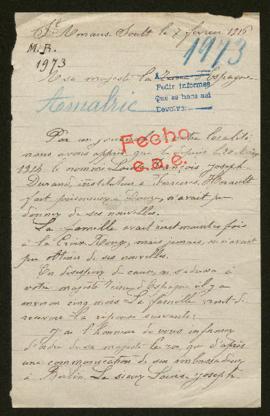 St Amans Soult le 7 février 1916
M.B.
1973
1973
A sa majesté la Reine d'Espagne
Amalric
A
Pedir informes
Que se haga asi
Devolver
Par un journal de notre localité
nous avons appris que depuis le 20
1914 le nommé Louis François Joseph
Durand, instituteur à Hérault
fait prisonnier à n'avait pu
donner de ses nouvelles.
Fecho
e.a.e.
La famille avait écrit maintes fois
à la Croix Rouge, mais jamais, n'avait
pu obtenir de ses nouvelles.
En désespoir de cause, on s'adressa à
votre majesté Reine d'Espagne il y a
environ cinq mois la famille vient de
recevoir la réponse suivante:
J'ai l'honneur de vous informer
d'ordre de sa majesté le roi, que d'après
une communication de son ambassadeur
à Berlin Le sieur Louis Joseph